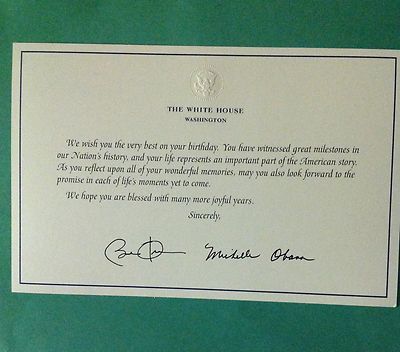 THE WHITE HOUSE
WASHINGTON
We wish you the very best on your birthday. You have witnessed great milestones in
our Nation's history, and your life represents an important part of the American story.
As you reflect upon all of your wonderful memories, may you also look forward to the
promise in each of life's moments yet to come.
We hope you are blessed with many more joyful years.
Sincerely,
Michelle Obama